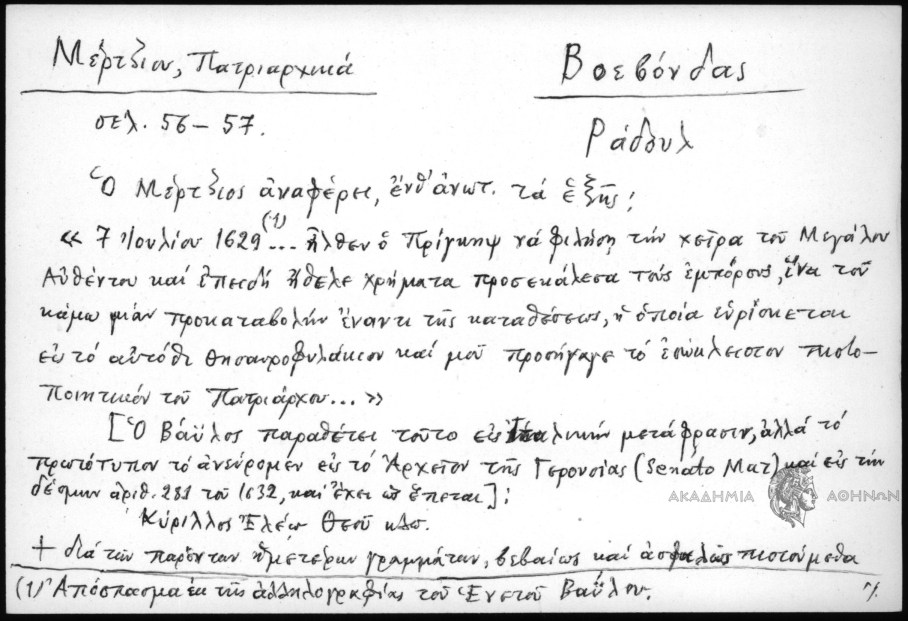 Μέρτζιου, Πατριαρχικά
Βοεβόνδας
σελ. 56-57.
Ράδουλ
Ὁ Μέρτζιος ἀναφέρει, ἔνθ' ἀνωτ. τά ἑξῆς:
« 7 Ἰουλίου 1629 (1)... ἦλθεν ὁ Πρίγκηψ νά φιλήσῃ τήν χεῖρα τοῦ Μεγάλου
Αὐθέντου καί ἐπειδή ἤθελε χρήματα προσεκάλεσα τούς ἐμπόρους, ἵνα τοῦ
κάμω μιάν προκαταβολήν ἔναντι τῆς καταθέσεως, ἡ ὁποία εὑρίσκεται
εἰς τό αὐτόθι θησαυροφυλάκιον καί μοῦ προσήγαγε τό ἐσώκλειστον πιστο-
ποιητικόν τοῦ Πατριάρχου... »
[Ὁ Βάϋλος παραθέτει τοῦτο εἰς Ἰταλικήν μετάφρασιν, ἀλλά τό
πρωτότυπον τό ἀνεύρομεν εἰς τό Ἀρχεῖον τῆς Γερουσίας (Senato Mar) καί εἰς τήν
δέσμην ἀριθ. 281 τοῦ 1632, καί ἔχει ὡς ἕπεται]:
Κύριλλος Ἐλέῳ Θεοῦ κλπ.
+ διά τῶν παρόντων ἡμετέρων γραμμάτων, βεβαίως καί ἀσφαλῶς πιστούμεθα
(1) Ἀπόσπασμα ἐκ τῆς ἀλληλογραφίας τοῦ Ἑνετοῦ Βαΐλου.
./.
ΑΚΑΔΗΜΙΑ ΑΘΗΝΩΝ